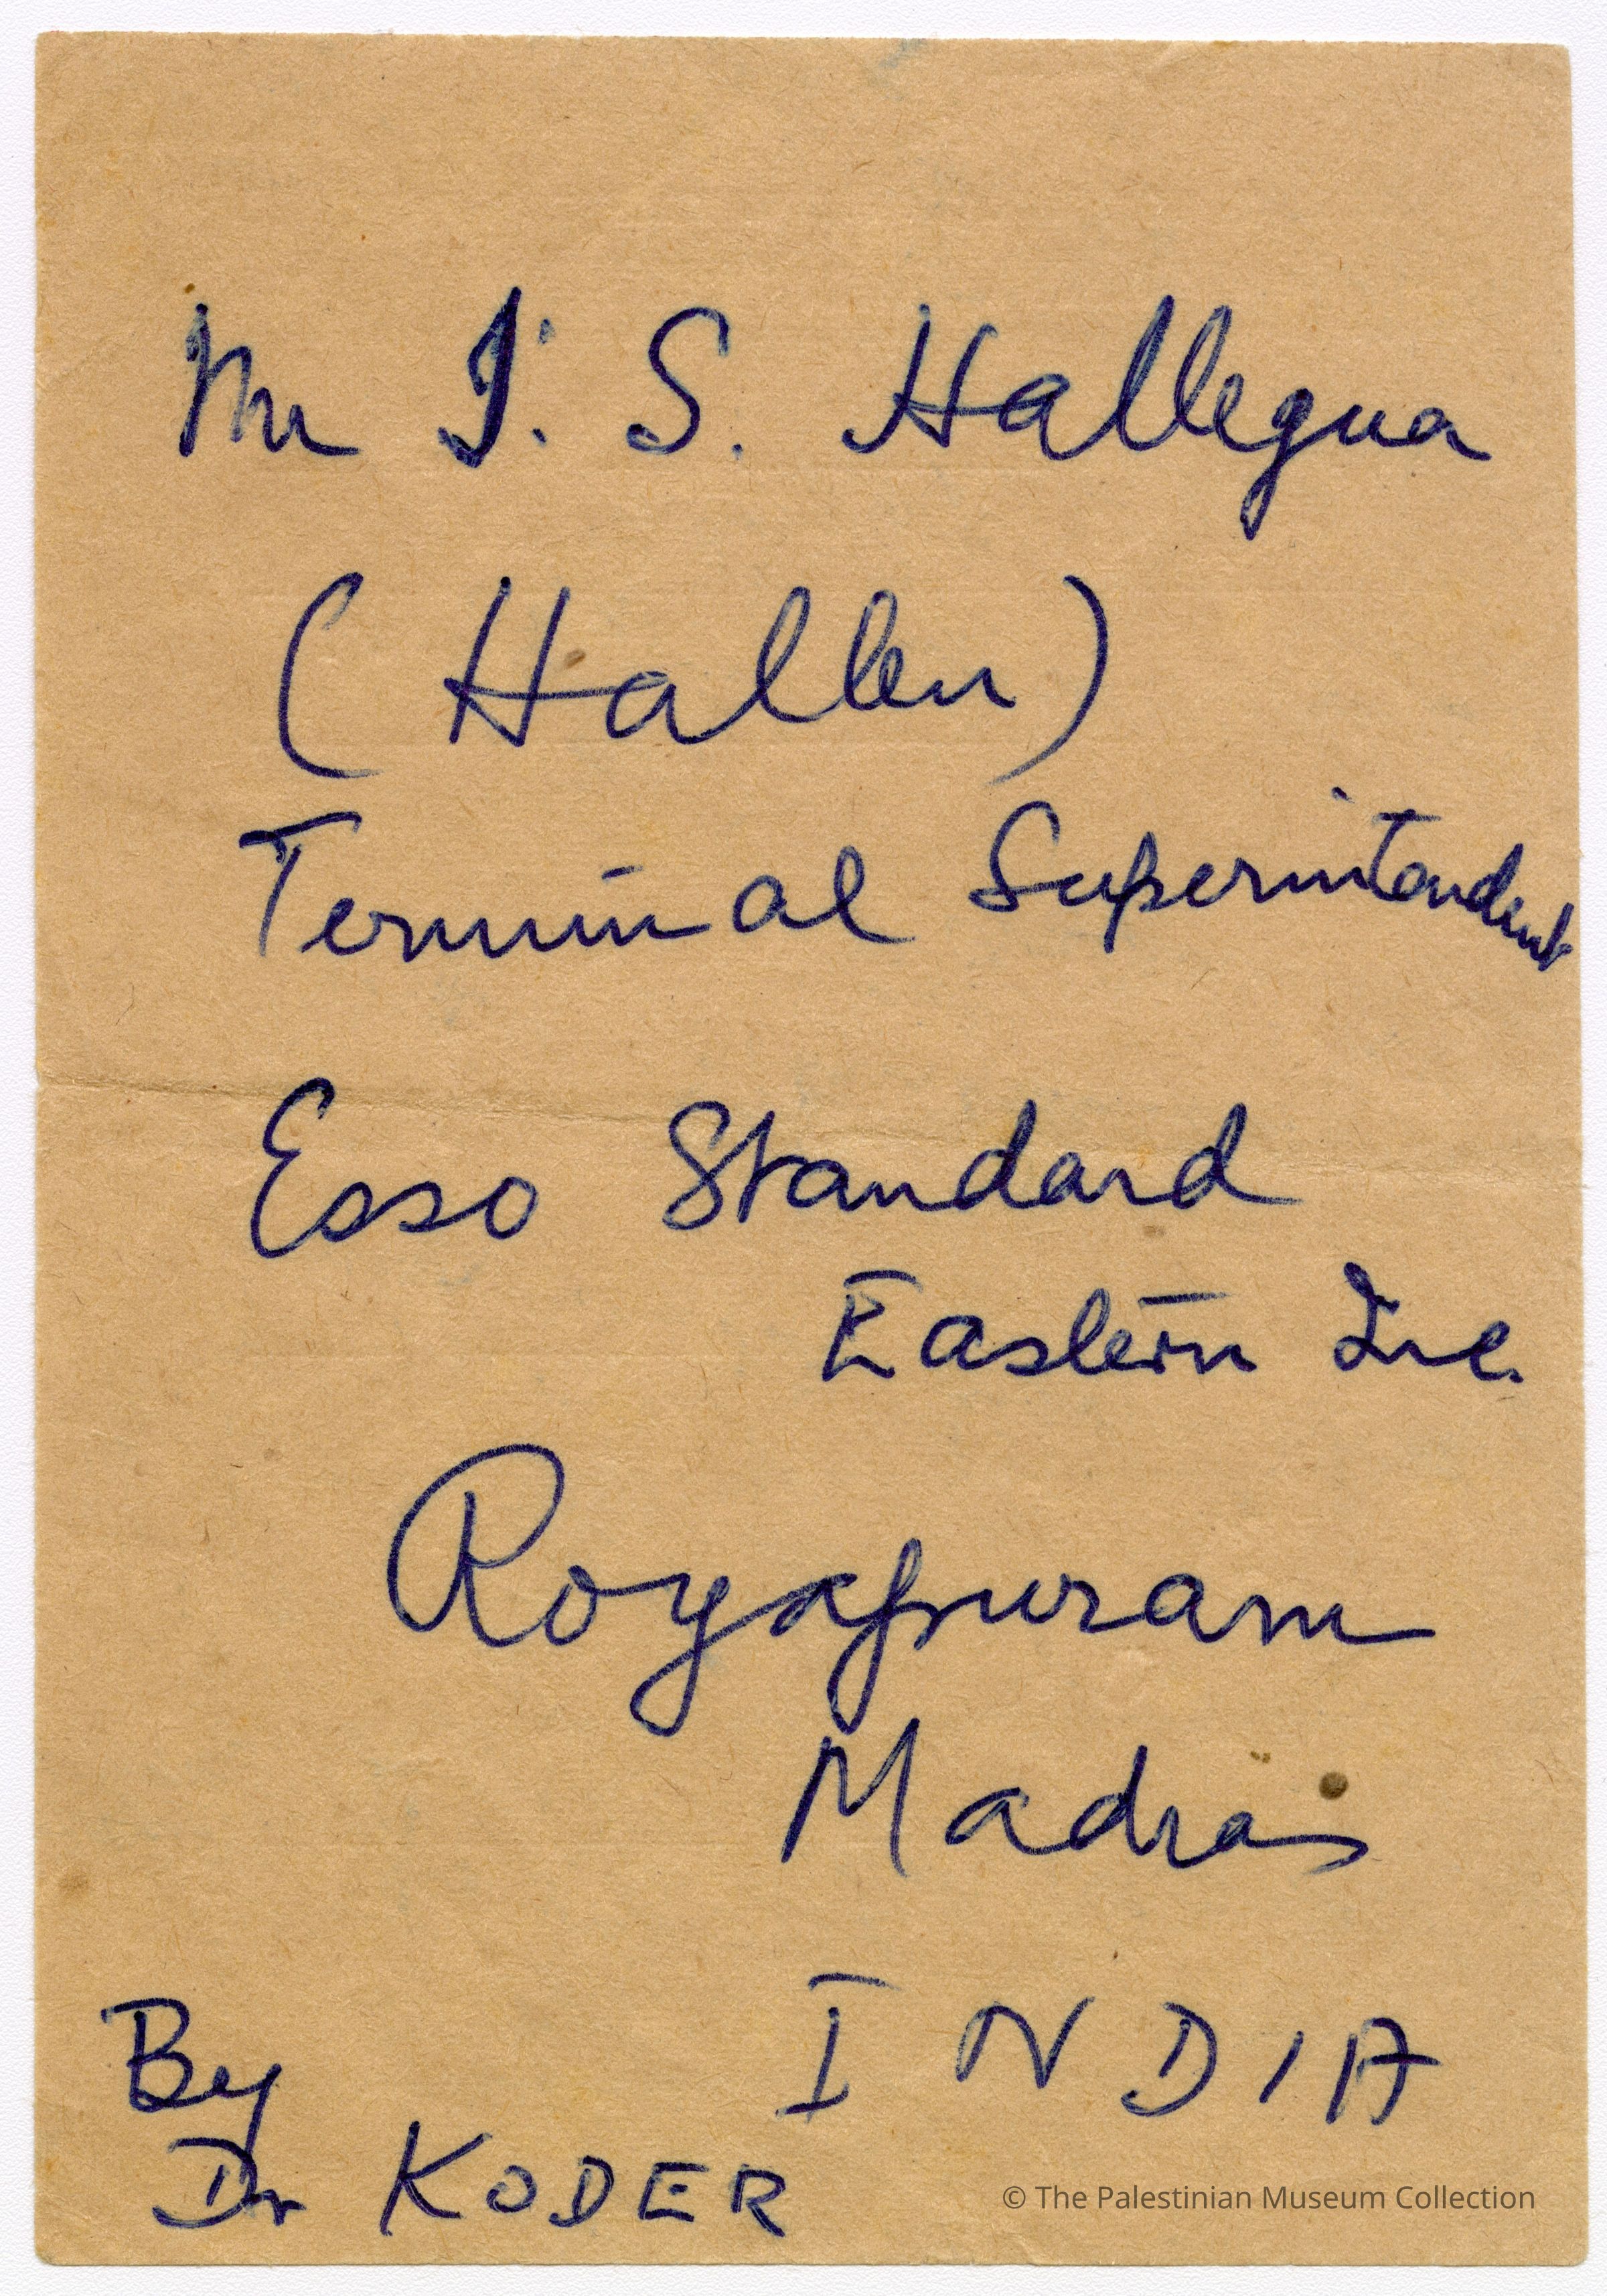 Mr I. S. Hallegua
(Hallen)
Terminal Superintendent
Esso Standard
Eastern Inc.
Royapuram
Madras
INDIA
By
Dr KODER
© The Palestinian Museum Collection